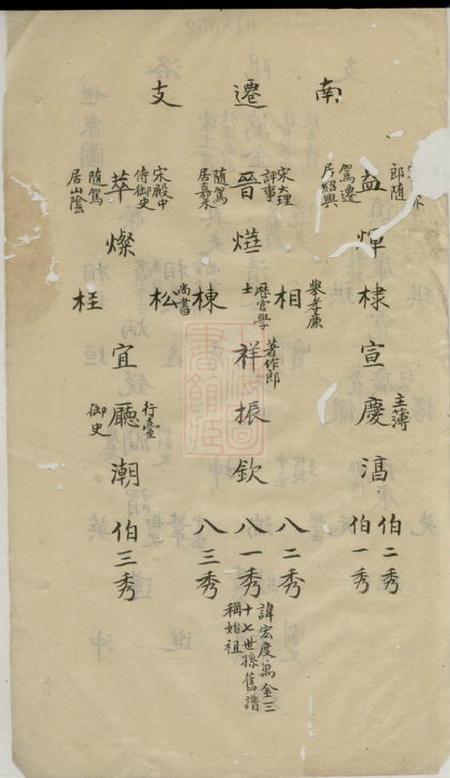 南遷支
益
郎隨
駕遷
居紹興
煇
棣
宣
慶
主簿
伯二秀
伯一秀
晉
宋大理
評事
隨駕
居嘉禾
相
舉孝廉
歷官學
士
棟
祥
著作郎
振
欽
八二秀
八一秀
諱宏度萬金三
十七世孫舊譜
稱始祖
八三秀
萃
宋殿中
侍御史
隨駕
居山陰
燦
松
尚書
枉
宜
廳
行臺
御史
潮
伯三秀